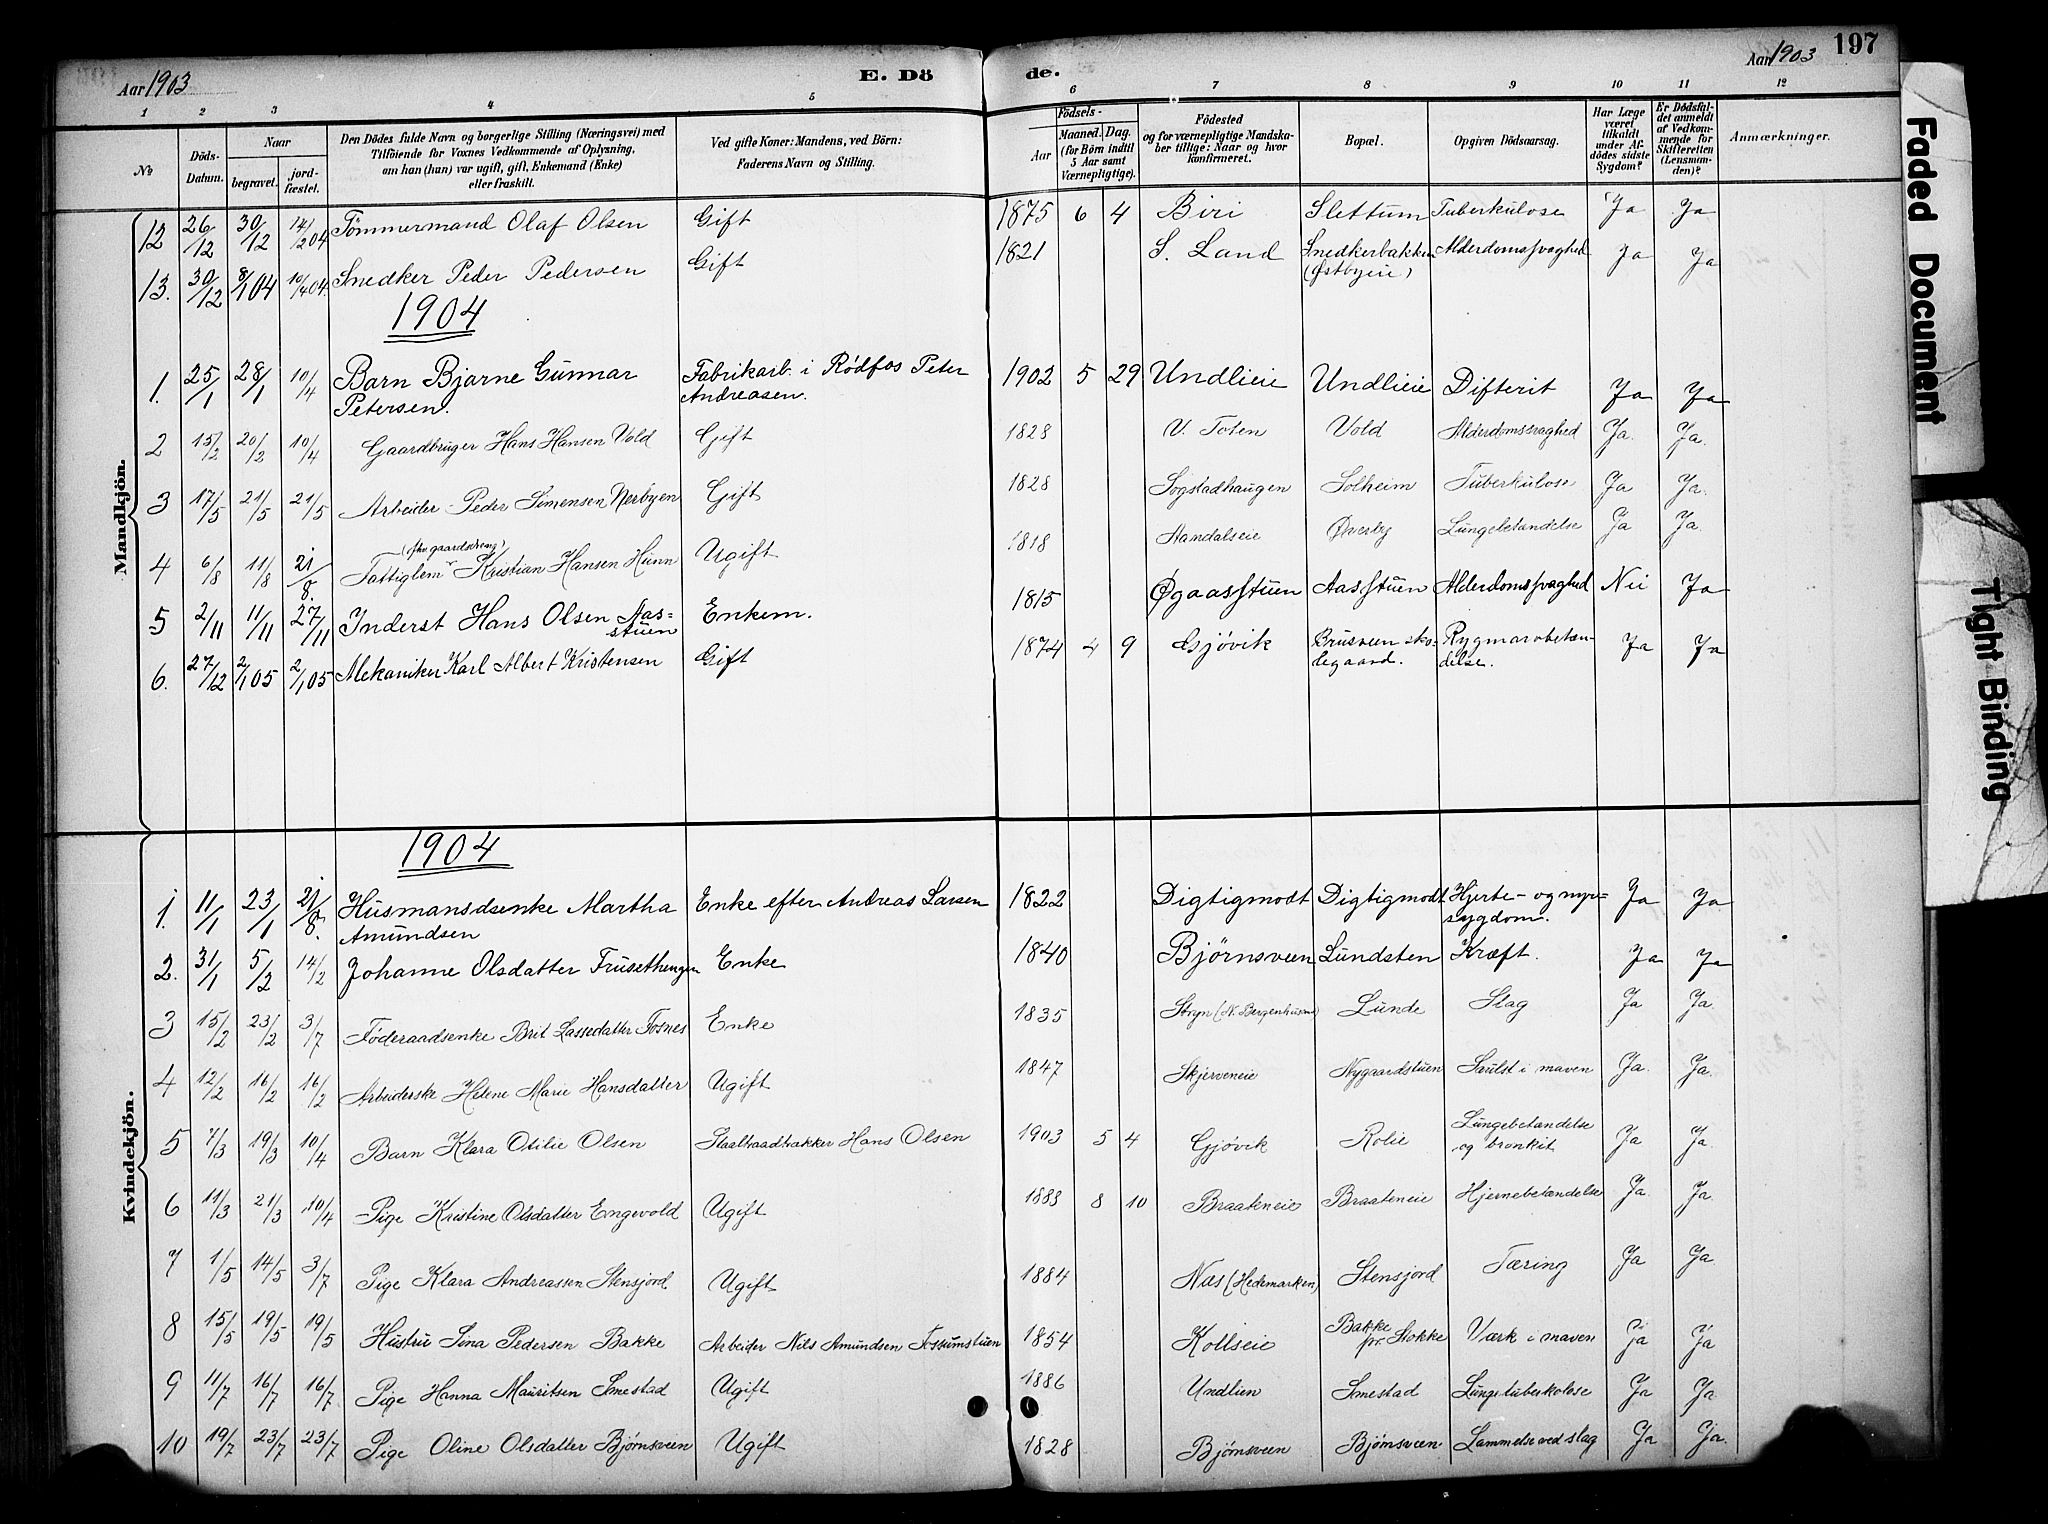 Aar 1903 E. Dö de. Aar 1903 197
1 2 3 4 5 6 7 8 9 10 11 12
No Döds-Datum. Naar begravet. jord-fæstet. Den Dödes fulde Navn og borgerlige Stilling (Næringsvei) med Tilföiende for Voxnes Vedkommende af Oplysning, om han (hun) var ugift, gift, Enkemand (Enke) eller fraskilt. Ved gifte Koner: Mandens, ved Börn: Faderens Navn og Stilling. Födsels- Aar Maaned. Dag. (for Börn indtil 5 Aar samt Værnepligtige). Födested og for værnepligtige Mandskaber tillige: Naar og hvor konfirmeret. Bopæl. Opgiven Dödsaarsag. Har Læge været tilkaldt under Afdödes sidste Sygdom? Er Dödsfaldet anmeldt af Vedkommende for Skifteretten (Lensmanden)? Anmærkninger.
Mandkjön.
12 26/12 30/12 14/2 04 Tømmermand Olaf Olsen Gift 1875 6 4 Biri Slettum Tuberkulose Ja Ja
13. 30/12 8/1 04 10/4 04. Snedker Peder Pedersen Gift 1821 S. Land Snedkerbakken (Østbyeie) Alderdomssvaghed Ja Ja
1904
1. 25/1 28/1 10/4 Barn Bjarne Gunnar Petersen. Fabrikarb. i Rødfos Peter Andreasen. 1902 5 29 Undlieie Undlieie Difterit Ja Ja
2 15/2 20/2 10/4 Gaardbruger Hans Hansen Vold Gift 1823 V. Toten Vold Alderdomssvaghed Ja. Ja.
3 17/5 21/5 21/5 Arbeider Peder Simensen Nerbyen Gift 1828 Sogstadhaugen Solheim Tuberkulose Ja Ja.
4 6/8 11/8 21/8. Fattiglem (fhv gaardsdreng) Kristian Hansen Hunn Ugift 1818 Aandalseie Øverby Lungebetændelse Ja Ja.
5 2/11 11/11 27/11 Inderst Hans Olsen Aas-stuen Enkem. 1815 Øgaasstuen Aasstuen Alderdomssvaghed Nei Ja
6. 27/12 2/1 05 2/1 05 Mekaniker Karl Albert Kristensen Gift 1874 4 9 Gjøvik Brusveen sko-legaard. Rygmarvsbetæn-delse. Ja Ja
Kvindekjön.
1904
1. 11/1 23/1 21/8. Husmandsenke Martha Amundsen Enke efter Andreas Larsen 1822 Digtigmodt Digtigmodt Hjerte- og nyre-sygdom. Ja Ja
2. 31/1 5/2 14/2 Johanne Olsdatter Frusethengen Enke 1840 Bjørnsveen Lundsten Kræft. Ja Ja
3 15/2 23/2 3/7 Føderaadsenke Brit Lassedatter Tosnes Enke 1835 Stryn (N. Bergenhusamt) Lunde Slag Ja Ja.
4 12/2 16/2 16/2 Arbeiderske Helene Marie Hansdatter Ugift 1847 Skjerveneie Nygaardstuen Saulst i maven Ja. Ja.
5 7/3 19/3 10/4 Barn Klara Otilie Olsen Staaltraadtrækker Hans Olsen 1903 5 4 Gjøvik Rolie Lungebetændelse og bronkit Ja Ja.
6 11/3 21/3 10/4 Pige Kristine Olsdatter Engevold Ugift 1883 8 10 Braateneie Braateneie Hjernebetændelse Ja. Ja.
7 1/5 14/5 3/7 Pige Klara Andreassen Stensjord Ugift 1884 Næs (Hedemarken) Stensjord Tæring Ja Ja
8 15/5 19/5 19/5 Hustru Sina Pedersen Bakke Arbeider Nils Amundsen Fossumstuen 1854 Kollseie Bakke pr. Stokke Værk i maven Ja Ja
9 11/7 16/7 16/7 Pige Hanna Mauritsen Smestad Ugift 1886 Undlien Smestad Lungetuberkolose Ja Ja
10 19/7 23/7 23/7 Pige Oline Olsdatter Bjørnsveen Ugift 1828 Bjørnsveen Bjørnsveen Lammelse ved slag Ja Ja.
Faded Document
Tight Binding